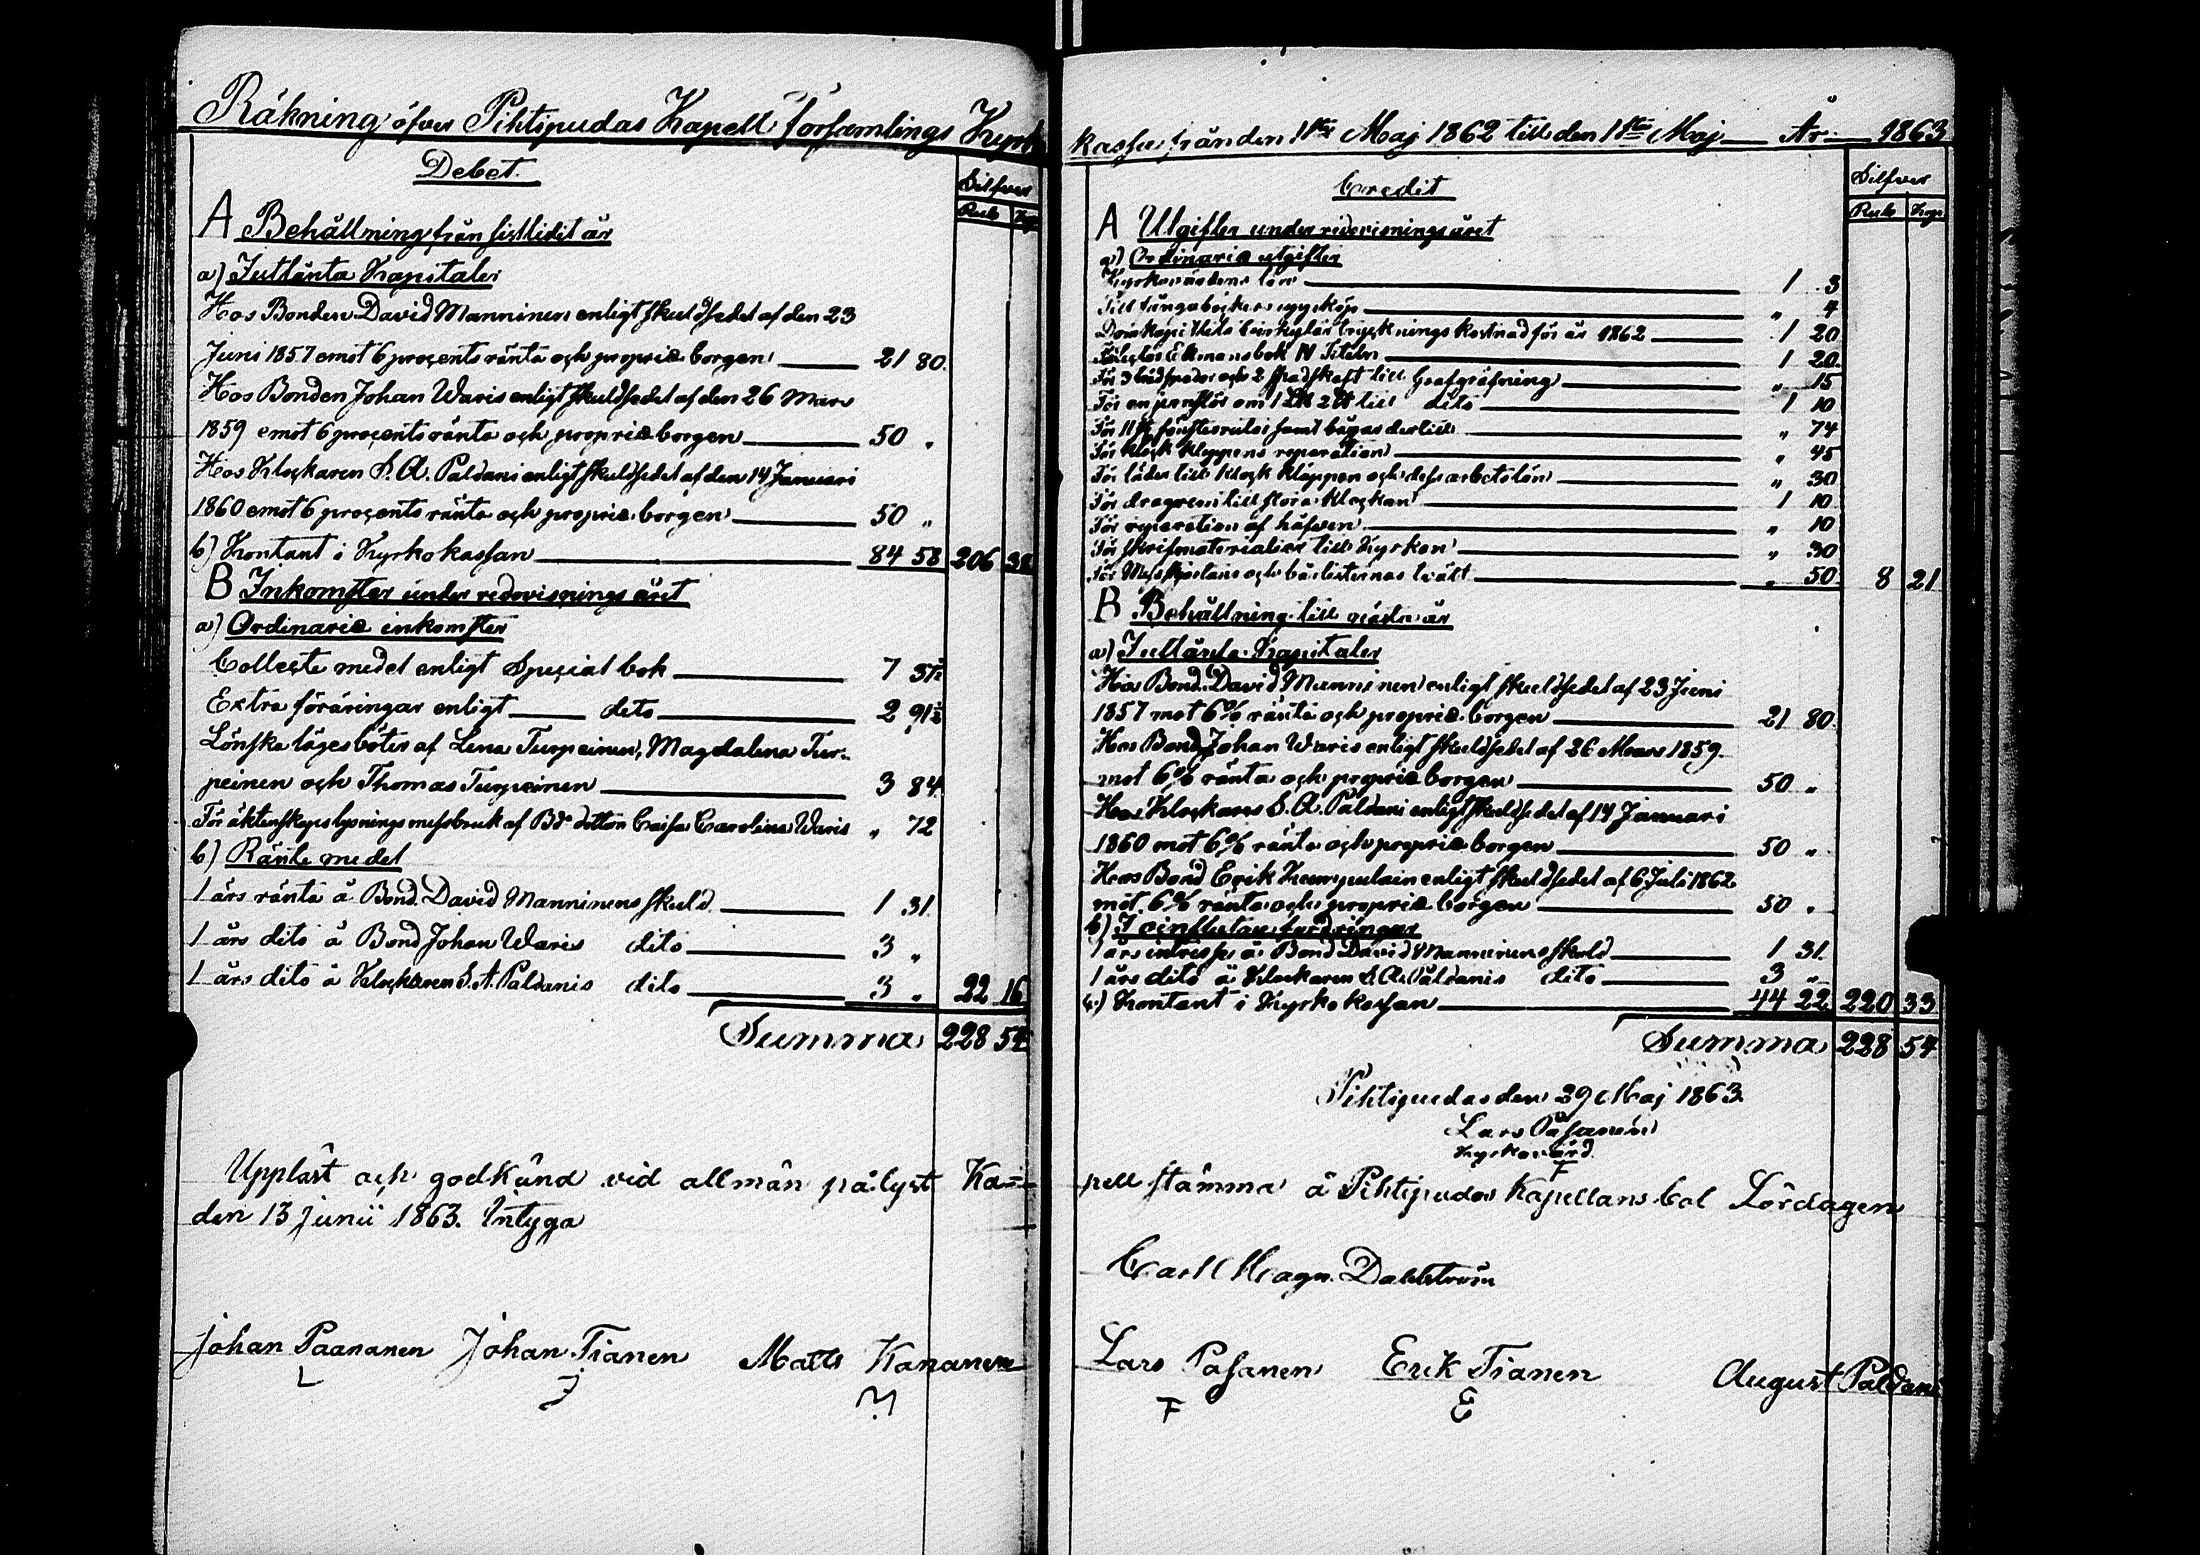 Räkning öfver Pihtipudas Kapell församlings Kyrko
Debet.
Silfver
Rub Kop
A Behållning från sistledit år
a) Jutlånta Kapitaler
Hos Bonden David Manninen enligt skuldsedel af den 23
Juni 1857 emot 6 procents ränta och proprie borgen 21 80.
Hos Bonden Johan Waris enligt skuldsedel af den 26 Mars
1859 emot 6 procents ränta och proprie borgen 50 "
Hos Klockaren S. A. Paldani enligt skuldsedel af den 14 Januari
1860 emot 6 procents ränta och proprie borgen 50 "
b) Kontant i Kyrkokassan 84 58 206 38
B Inkomster under redovisnings året
a) Ordinarie inkomster
Collecte medel enligt Special bok 7 37½
Extra föräringar enligt dito 2 91½
Lönskalägesböter af Lena Turpeinen, Magdalena Tur-
peinen och Thomas Turpeinen 3 84
För äktenskapslysnings missbruk af Bd dotton Caisa Carolina Waris " 72
b) Ränte medel
1 års ränta å Bond. David Manninens skuld 1 31
1 års dito å Bond Johan Waris dito 3 "
1 års dito å Klockaren S. A. Paldanis dito 3 " 22 16
Summa 228 54
Uppläst och godkänd vid allmän pålyst Ka-
den 13 Junii 1863. Intyga
Johan Paananen Johan Tianen Matts Kananen
kassa från den 1sta Maj 1862 till den 1sta Maj År 1863
Credit
Silfver
Rub Kop
A Utgifter under redovisnings året
a) Ordinarie utgifter
Kyrkovärdens lön 1 3
Till sångböckers uppköp " 4
Domkapitlets cirkulär tryckningskostnad för år 1862 1 20
Ekmans bok IV Titeln 1 20.
För 3 och 2 skaft till Grafgräfning " 15
För en jernstör om 1 L℔ 2 ℔ till dito 1 10
För 11 st. fönsterrutor samt bågar dertill " 74
För klock kläppens reparation " 45
För läder till klock kläppen och dess arbetslön " 30
För dragrem till stora klockan 1 10
För reparation af håfven " 10
För skrifmaterialier till Kyrkan " 30
För Messkjortans och tvätt " 50 8 21
B Behållning till nästa år
a) Jutlånta Kapitaler
Hos Bond. David Manninen enligt skuldsedel af 23 Juni
1857 mot 6% ränta och proprie borgen 21 80.
Hos Bond Johan Waris enligt skuldsedel af 26 Mars 1859.
mot 6% ränta och proprie borgen 50 "
Hos Klockaren S. A. Paldani enligt skuldsedel af 14 Januari
1860 mot 6% ränta och proprie borgen 50 "
Hos Bond Erik Kumpulain enligt skuldsedel af 6 Juli 1862
mot 6% ränta och proprie borgen 50 "
b) Oinflutna fordringar
1 års intresse å Bond David Manninens skuld 1 31.
1 års dito å Klockaren S. A. Paldanis dito 3 "
c) Kontant i Kyrkokassan 44 22 220 33
Summa 228 54
Pihtipudas den 29 Maj 1863.
Lars Pasanen
Kyrkovärd.
F
pell stämma å Pihtipudas Kapellans bol Lördagen
Carl Magn. Dahlström
Lars Pasanen Erik Tianen August Paldani
F E